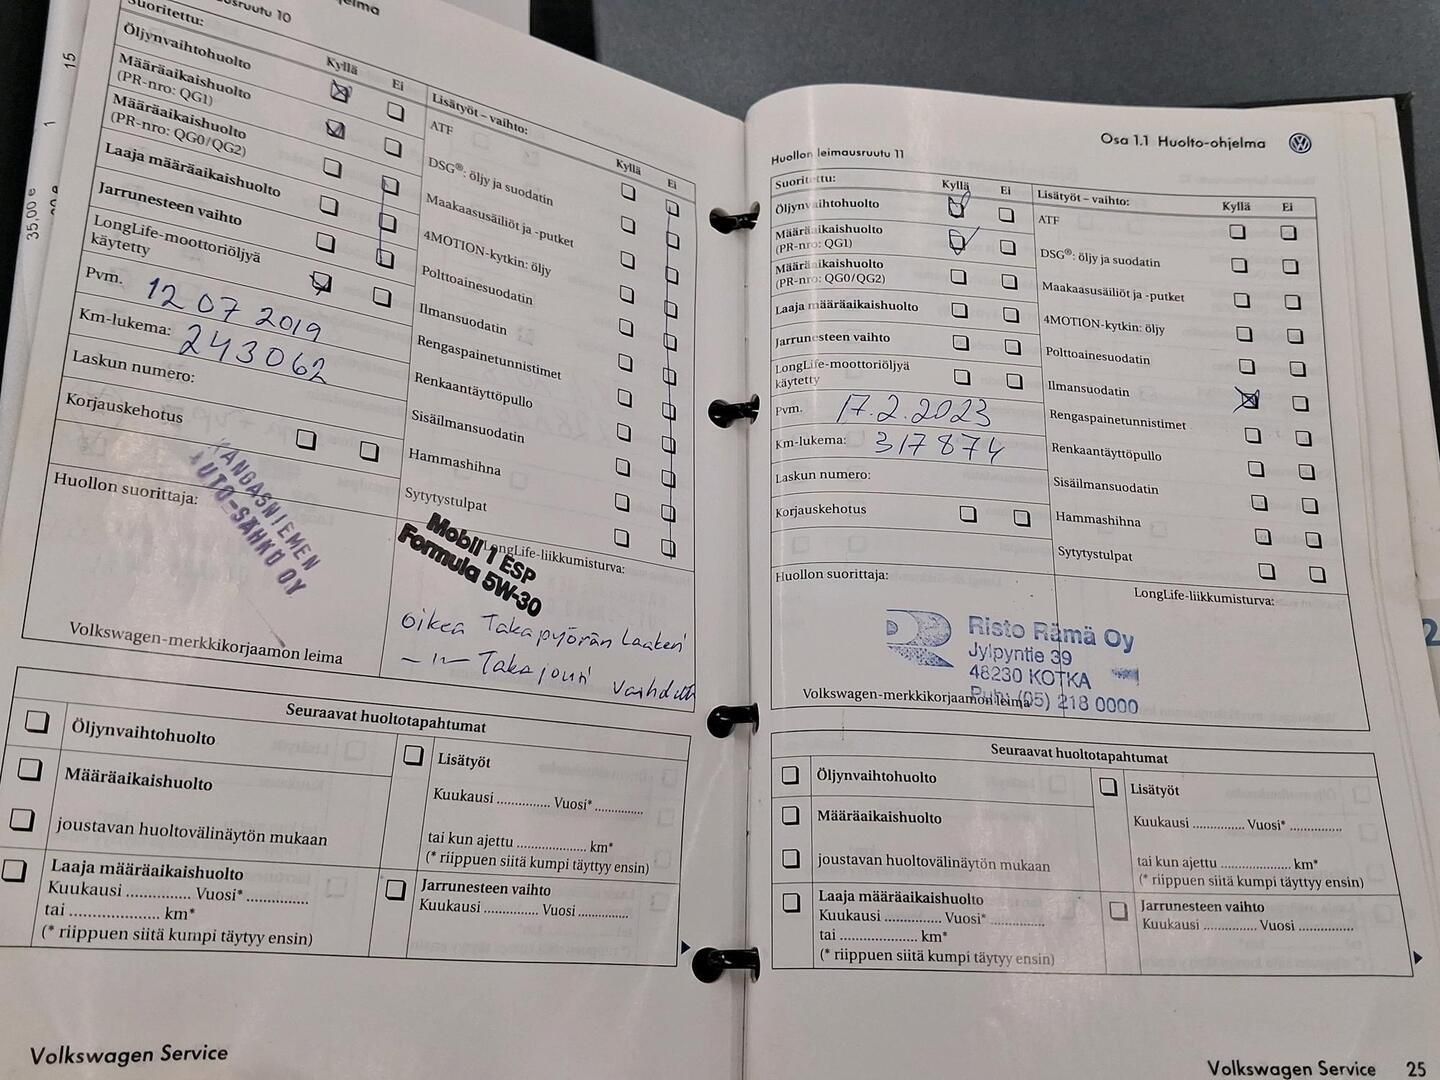 35,00 €
15
1
10
Suoritettu:
Kyllä
Ei
Öljynvaihtohuolto
Määräaikaishuolto
(PR-nro: QG1)
Määräaikaishuolto
(PR-nro: QG0/QG2)
Laaja määräaikaishuolto
Jarrunesteen vaihto
LongLife-moottoriöljyä
käytetty
Pvm. 12 07 2019
Km-lukema: 243062
Laskun numero:
Korjauskehotus
Huollon suorittaja:
KANGASNIEMEN
AUTO-SÄHKÖ OY
Volkswagen-merkkikorjaamon leima
Lisätyöt – vaihto:
Kyllä
Ei
ATF
DSG®: öljy ja suodatin
Maakaasusäiliöt ja -putket
4MOTION-kytkin: öljy
Polttoainesuodatin
Ilmansuodatin
Rengaspainetunnistimet
Renkaantäyttöpullo
Sisäilmansuodatin
Hammashihna
Sytytystulpat
LongLife-liikkumisturva:
Mobil 1 ESP
Formula 5W-30
oikea Takapyörän Laakeri
–"– Takajousi vaihdettu
Seuraavat huoltotapahtumat
Öljynvaihtohuolto
Määräaikaishuolto
joustavan huoltovälinäytön mukaan
Laaja määräaikaishuolto
Kuukausi ............. Vuosi* .............
tai ................... km*
(* riippuen siitä kumpi täytyy ensin)
Lisätyöt
Kuukausi ............... Vuosi* .............
tai kun ajettu .................... km*
(* riippuen siitä kumpi täyttyy ensin)
Jarrunesteen vaihto
Kuukausi ............... Vuosi ..............
Volkswagen Service
Osa 1.1 Huolto-ohjelma
Huollon leimausruutu 11
Suoritettu:
Kyllä
Ei
Öljynvaihtohuolto
Määräaikaishuolto
(PR-nro: QG1)
Määräaikaishuolto
(PR-nro: QG0/QG2)
Laaja määräaikaishuolto
Jarrunesteen vaihto
LongLife-moottoriöljyä
käytetty
Pvm. 17.2.2023
Km-lukema: 317874
Laskun numero:
Korjauskehotus
Huollon suorittaja:
Risto Rämä Oy
Jylpyntie 39
48230 KOTKA
Puh. (05) 218 0000
Volkswagen-merkkikorjaamon leima
Lisätyöt – vaihto:
Kyllä
Ei
ATF
DSG®: öljy ja suodatin
Maakaasusäiliöt ja -putket
4MOTION-kytkin: öljy
Polttoainesuodatin
Ilmansuodatin
Rengaspainetunnistimet
Renkaantäyttöpullo
Sisäilmansuodatin
Hammashihna
Sytytystulpat
LongLife-liikkumisturva:
Seuraavat huoltotapahtumat
Öljynvaihtohuolto
Määräaikaishuolto
joustavan huoltovälinäytön mukaan
Laaja määräaikaishuolto
Kuukausi ............... Vuosi* ..............
tai .................... km*
(* riippuen siitä kumpi täytyy ensin)
Lisätyöt
Kuukausi .............. Vuosi* ..............
tai kun ajettu .................... km*
(* riippuen siitä kumpi täyttyy ensin)
Jarrunesteen vaihto
Kuukausi ............... Vuosi ...............
Volkswagen Service 25
2